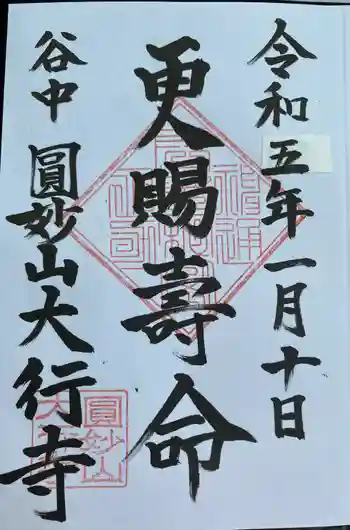 令和五年一月十日
更賜壽命
谷中 圓妙山大行寺
圓妙山
大行寺